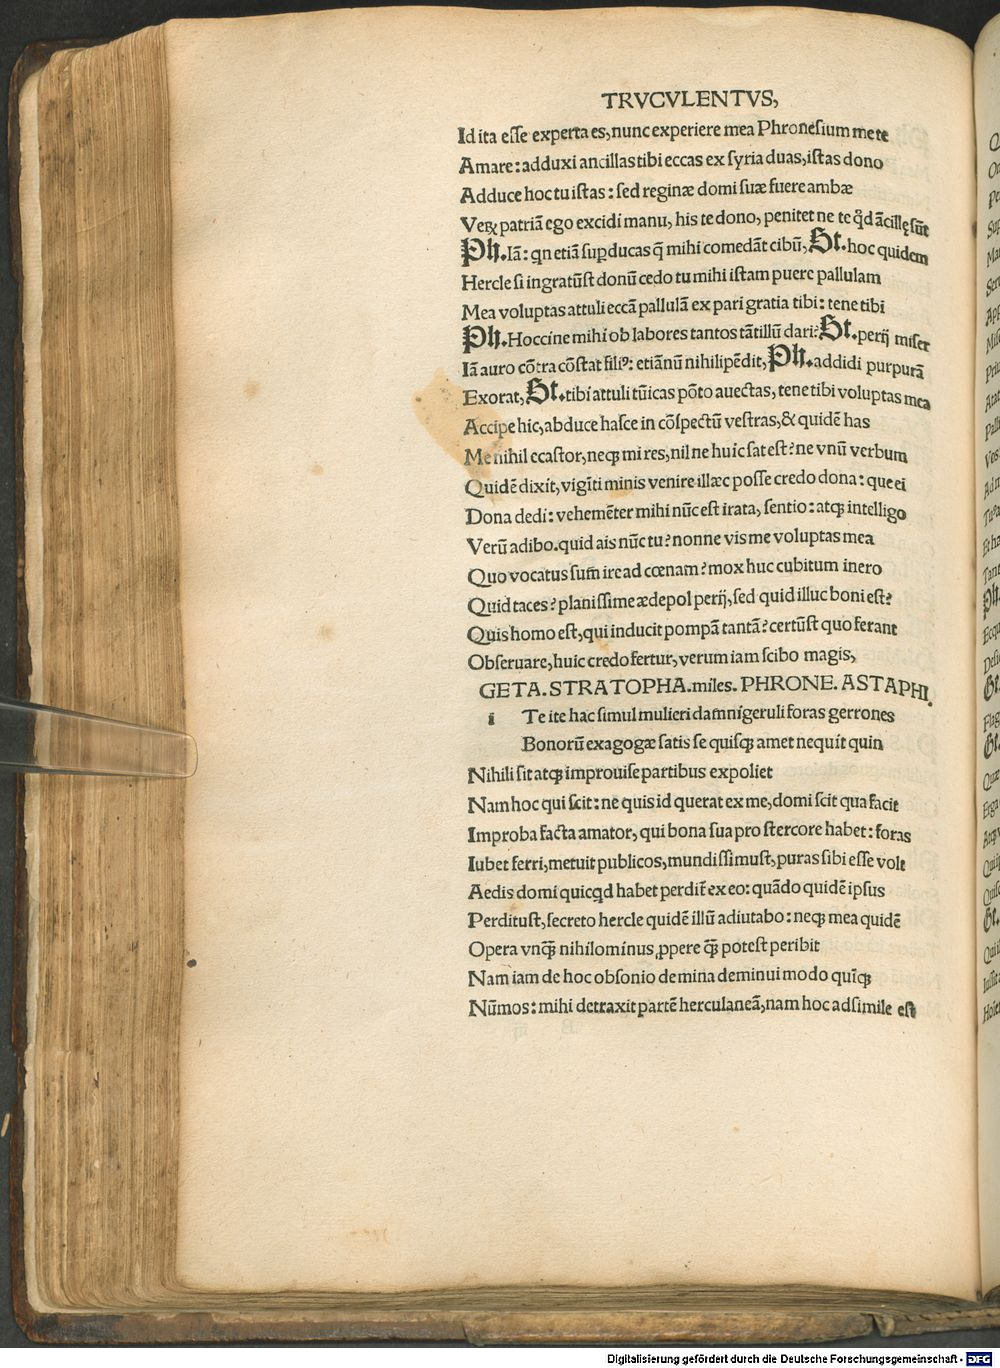 TRVCVLENTVS,
Id ita esse experta es, nunc experiere mea Phronesium me te
Amare: adduxi ancillas tibi eccas ex syria duas, istas dono
Adduce hoc tu istas: sed reginæ domi suæ fuere ambæ
Veꝝ patriã ego excidi manu, his te dono, penitet ne te qd ãcillę sũt
Ph. Iã: qn etiã supducas q̃ mihi comedãt cibũ, St. hoc quidem
Hercle si ingratũst donũ cedo tu mihi istam puere pallulam
Mea voluptas attuli eccã pallulã ex pari gratia tibi: tene tibi
Ph. Hoccine mihi ob labores tantos tãtillũ dari? St. perij miser
Iã auro cõtra cõstat filiꝰ: etiãnũ nihilipẽdit, Ph. addidi purpurã
Exorat, St. tibi attuli tũicas põto auectas, tene tibi voluptas mea
Accipe hic, abduce hasce in cõspectũ vestras, & quidẽ has
Me nihil ecastor, neqꝫ mi res, nil ne huic sat est? ne vnũ verbum
Quidẽ dixit, vigĩti minis venire illæc posse credo dona: que ei
Dona dedi: vehemẽter mihi nũc est irata, sentio: atqꝫ intelligo
Verũ adibo. quid ais nũc tu? nonne vis me voluptas mea
Quo vocatus sum̃ ire ad cœnam? mox huc cubitum inero
Quid taces? planissime ædepol perij, sed quid illuc boni est?
Quis homo est, qui inducit pompã tantã? certũst quo ferant
Obseruare, huic credo fertur, verum iam scibo magis,
GETA. STRATOPHA. miles. PHRONE. ASTAPHI.
i Te ite hac simul mulieri damnigeruli foras gerrones
Bonorũ exagogæ satis se quisqꝫ amet nequit quin
Nihili sit atqꝫ improuise partibus expoliet
Nam hoc qui scit: ne quis id querat ex me, domi scit qua facit
Improba facta amator, qui bona sua pro stercore habet: foras
Iubet ferri, metuit publicos, mundissimust, puras sibi esse volt
Aedis domi quicqd habet perdit̃ ex eo: quãdo quidẽ ipsus
Perditust, secreto hercle quidẽ illũ adiutabo: neqꝫ mea quidẽ
Opera vnqꝫ̃ nihilominus ꝓpere qꝫ̃ potest peribit
Nam iam de hoc obsonio de mina deminui modo quĩqꝫ
Nũmos: mihi detraxit partẽ herculaneã, nam hoc adsimile est
Digitalisierung gefördert durch die Deutsche Forschungsgemeinschaft - DFG